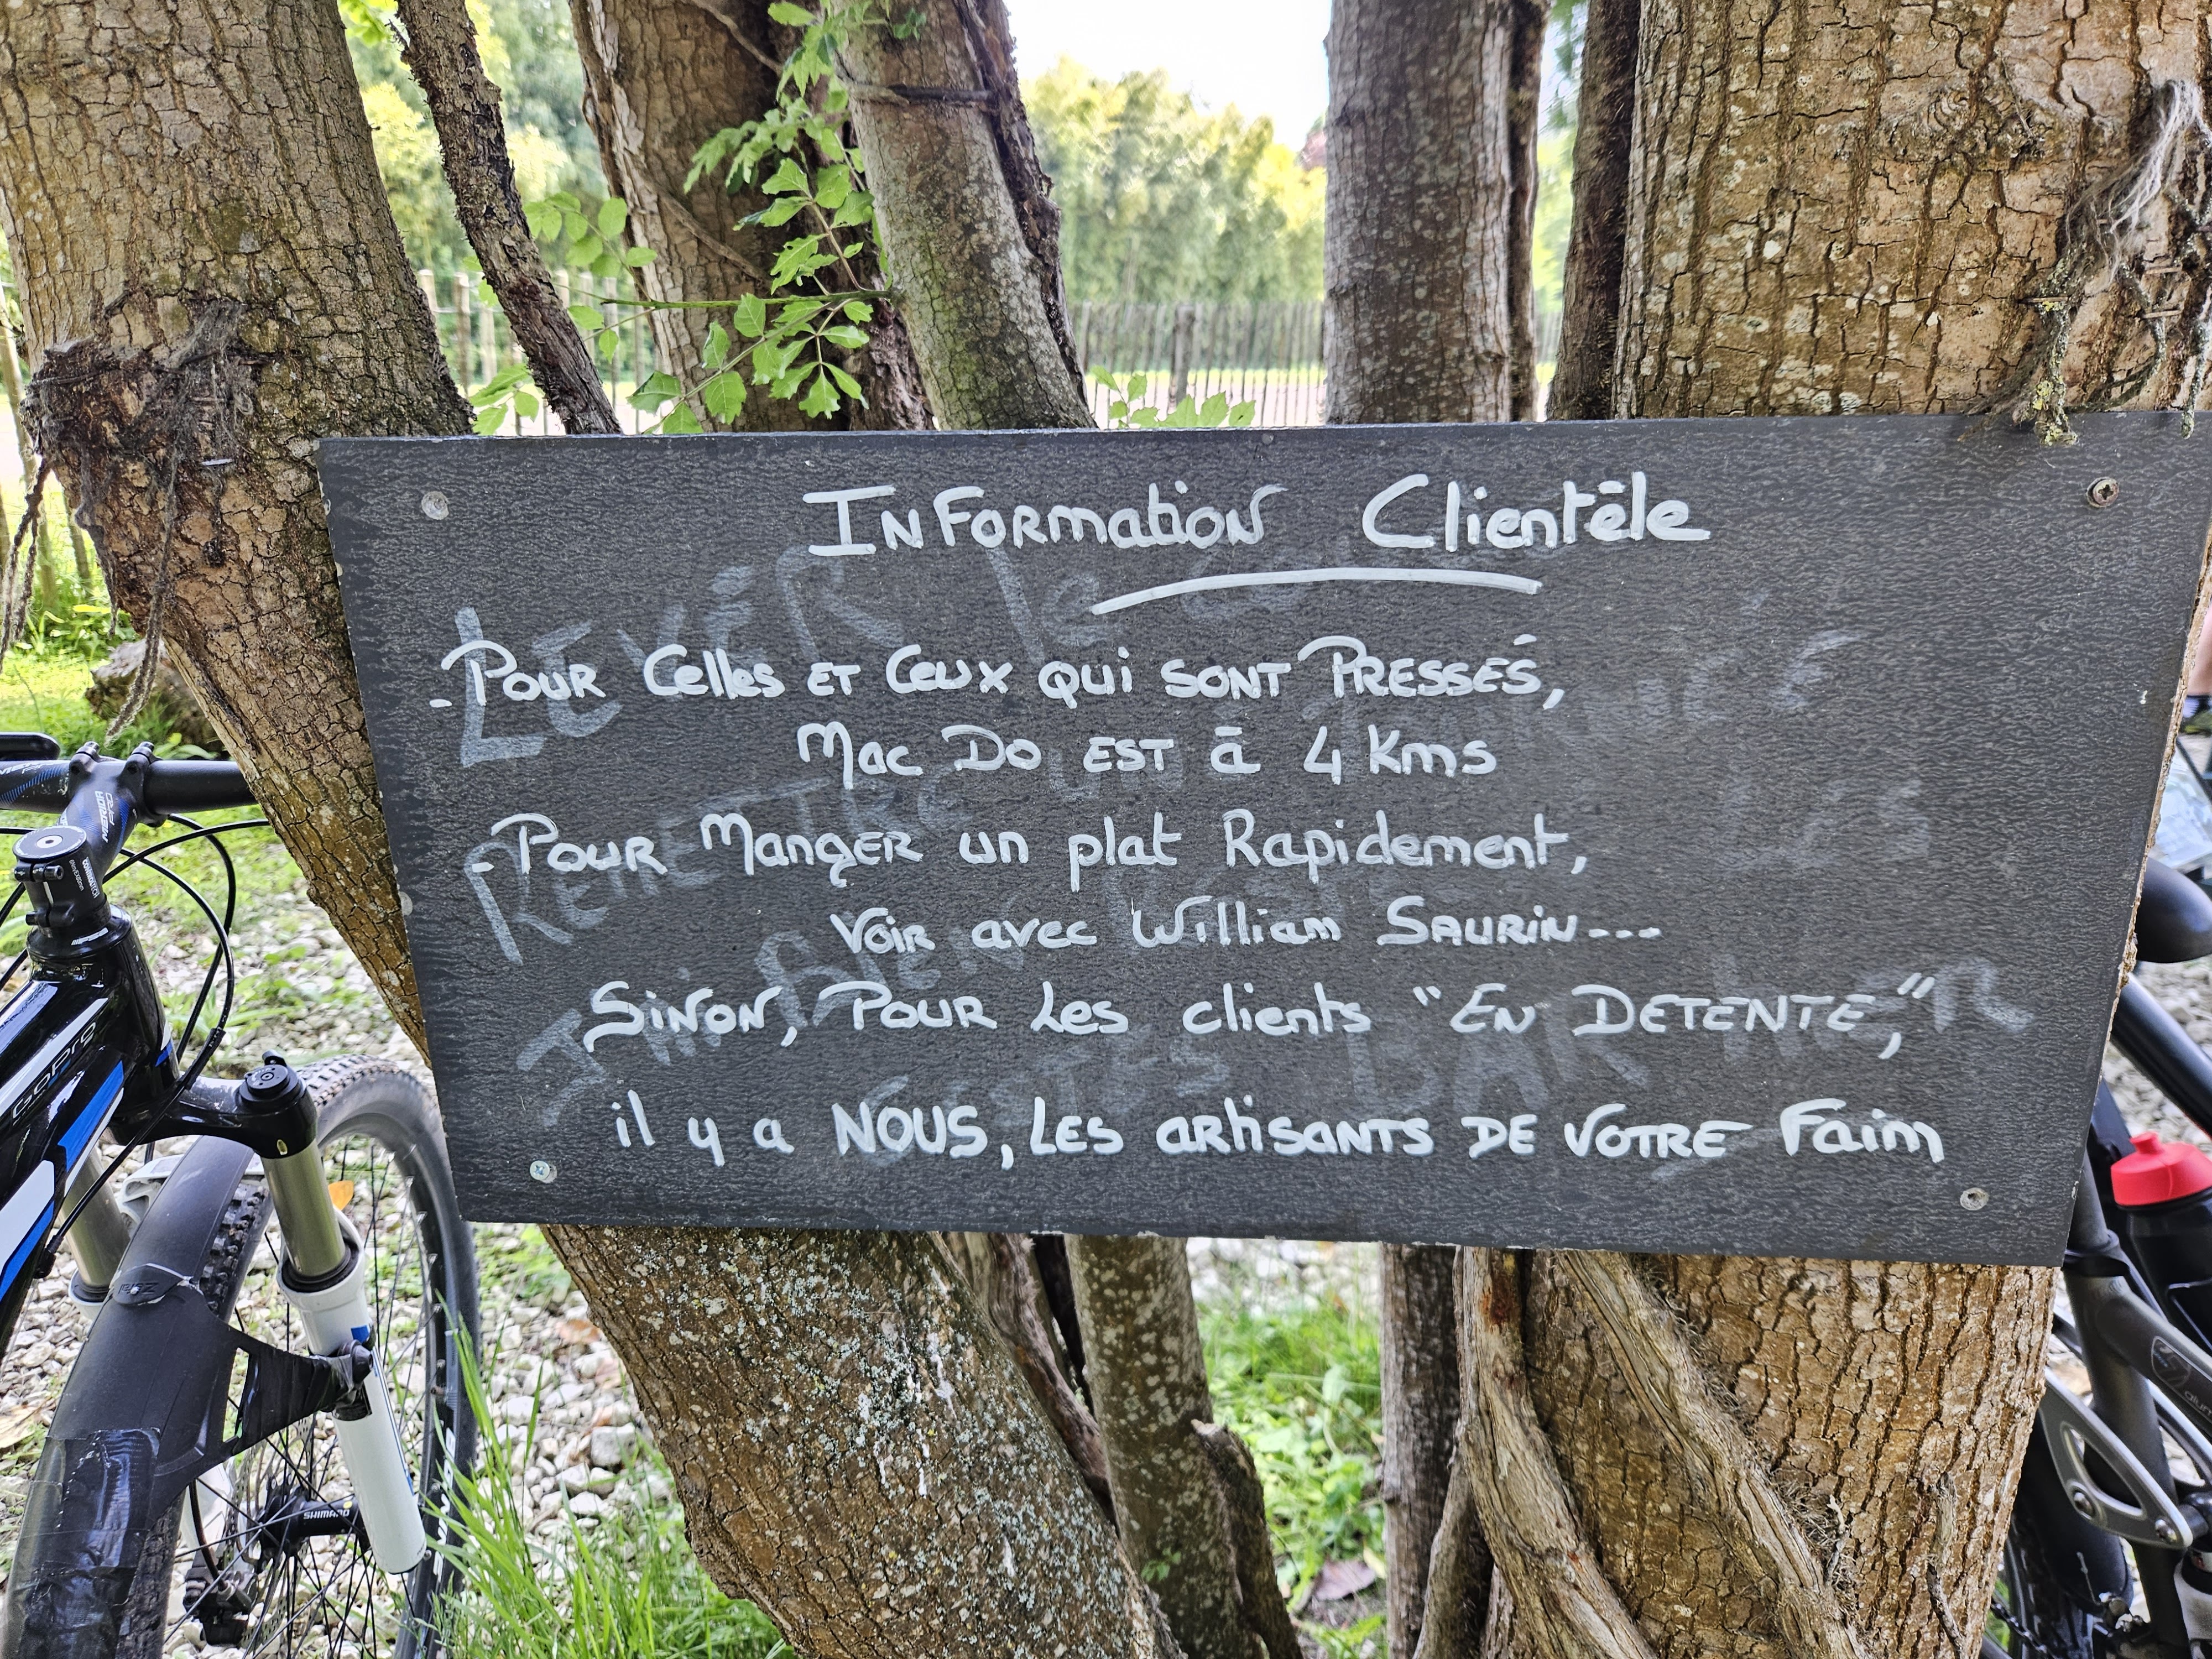 Information Clientèle
- Pour Celles et Ceux qui sont Pressés,
Mac Do est à 4 Kms
- Pour Manger un plat Rapidement,
Voir avec William Saurin---
Sinon, Pour Les clients "En Detente,"
il y a NOUS, Les artisants de votre Faim
GoPro
SHIMANO